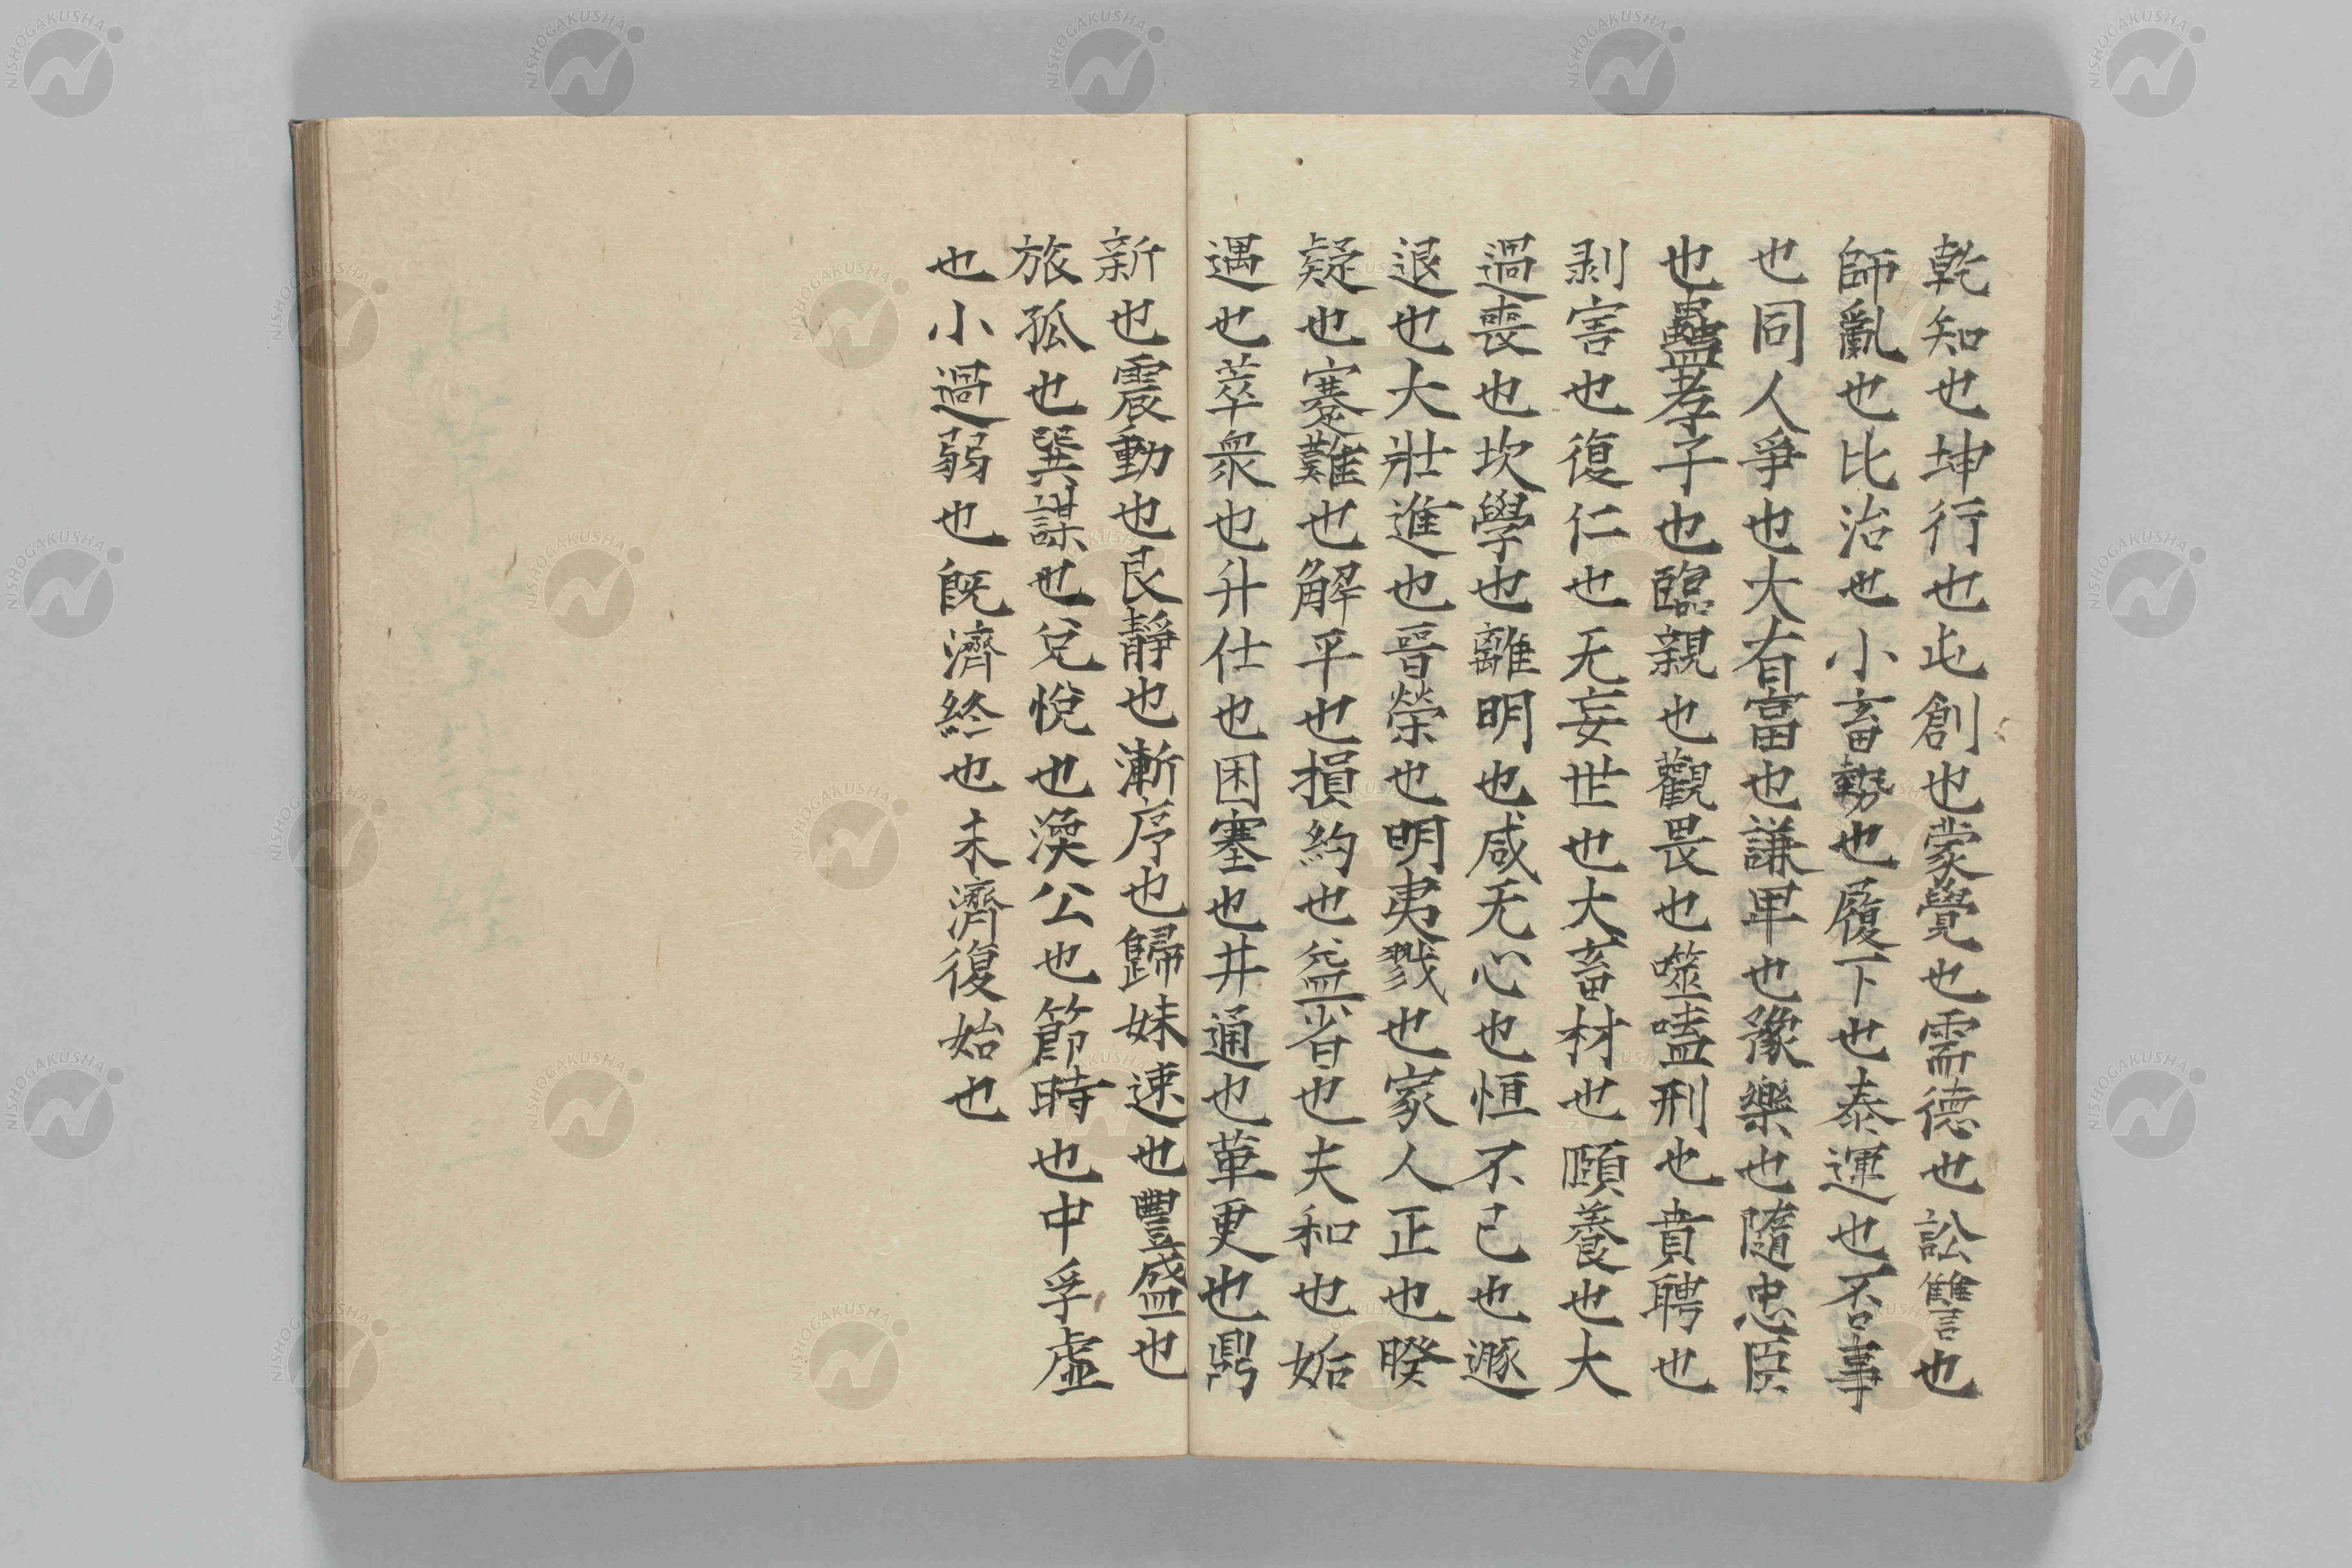 乾知也坤行也屯創也蒙覺也需德也訟讐也
師亂也比治也小畜勢也履下也泰運也否事
也同人爭也大有富也謙卑也豫樂也隨忠臣
也蠱孝子也臨親也觀畏也噬嗑刑也賁聘也
剥害也復仁也无妄世也大畜材也頤養也大
過喪也坎學也離明也咸无心也恒不已也遯
退也大壯進也晉榮也明夷戮也家人正也睽
疑也蹇難也解平也損約也益省也夫和也姤
遇也萃衆也升仕也困塞也井通也革更也鼎
新也震動也艮靜也漸序也歸妹速也豐盛也
旅孤也巽謀也兌悅也渙公也節時也中孚虛
也小過弱也既濟終也未濟復始也
NISHOGAKUSHA